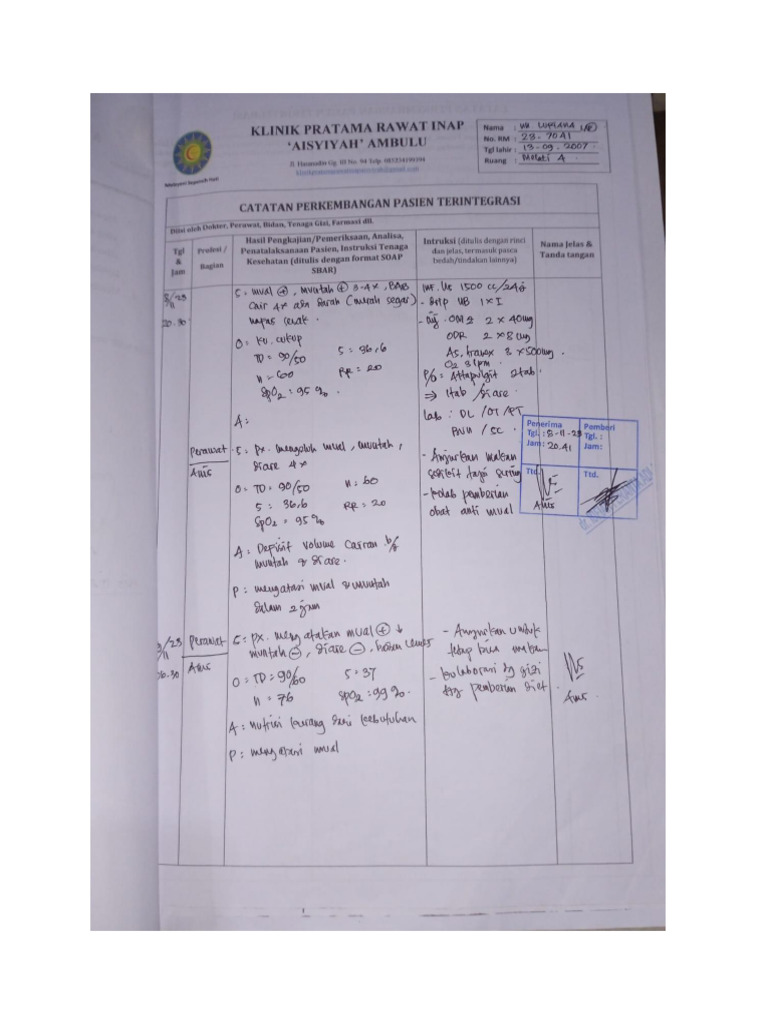 KLINIK PRATAMA RAWAT INAP
'AISYIYAH' AMBULU
Jl. Hasanudin Gg. III No. 94 Telp.
Melayani Sepenuh Hati
Nama :
No. RM : 28-7041
Tgl lahir : 13-09-2007
Ruang : Melati A
CATATAN PERKEMBANGAN PASIEN TERINTEGRASI
Diisi oleh Dokter, Perawat, Bidan, Tenaga Gizi, Farmasi dll.
Tgl & Jam
Profesi / Bagian
Hasil Pengkajian/Pemeriksaan, Analisa, Penatalaksanaan Pasien, Instruksi Tenaga Kesehatan (ditulis dengan format SOAP SBAR)
Intruksi (ditulis dengan rinci dan jelas, termasuk pasca bedah/tindakan lainnya)
Nama Jelas & Tanda tangan
8/11/23
20.30
S = mual (+), muntah (+) 3-4x, BAB
cair 4x darah (merah segar)
O = KU. cukup
TD = 90/50 S = 36,6
N = 60 RR = 20
SpO2 = 95 %
A :
1500 cc/24j
1 x I
- Inj. 2 x 40mg
ODR 2 x 8mg
As, tranex 3 x 500mg
O2 3 lpm
P/o = Attapulgit 2 tab
⇒ 1 tab / diare
Lab : DL / OT / PT
BUN / SC
Penerima
Tgl. : 8-11-23
Jam: 20.41
Ttd.
Anis
Pemberi
Tgl. :
Jam:
Ttd.
Perawat
Anis
S = px. mengeluh mual, muntah,
diare 4x
O = TD = 90/50 N = 60
S = 36,6 RR = 20
SpO2 = 95 %
A = Depisit volume cairan b/d
muntah & diare.
P = mengatasi mual & muntah
dalam 2 jam
- Anjurkan makan
sedikit tapi sering
- kolab pemberian
obat anti mual
9/11/23
06.30
Perawat
Anis
S = px. mengatakan mual (+) ↓
muntah (-), diare (-), badan lemes
O = TD = 90/60 S = 37
N = 76 SpO2 = 99 %
A = nutrisi kurang dari kebutuhan
P = mengatasi mual
- Anjurkan untuk
tetap bisa makan
- kolaborasi dg gizi
pemberian diet
Anis